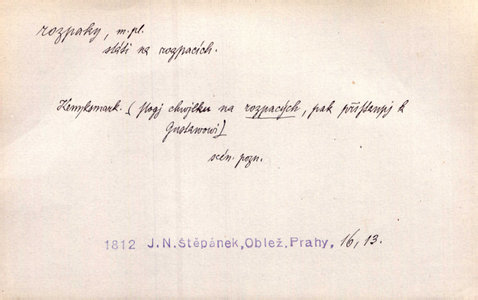 rozpaky, m. pl.
stáli na rozpacích.
Henyksmark. (Stogj chwjlku na rozpacých, pak přistaupj k
Gustawowi)
scén. pozn.
1812 J.N.Štěpánek,Oblež.Prahy, 16, 13.